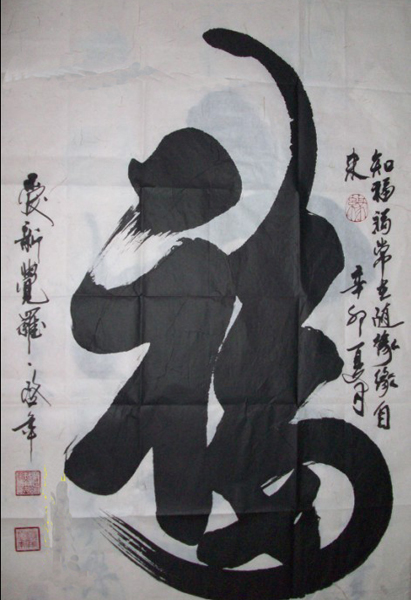 福
知福福常在随缘缘自
来
辛卯夏月
愛新覺羅·啟年